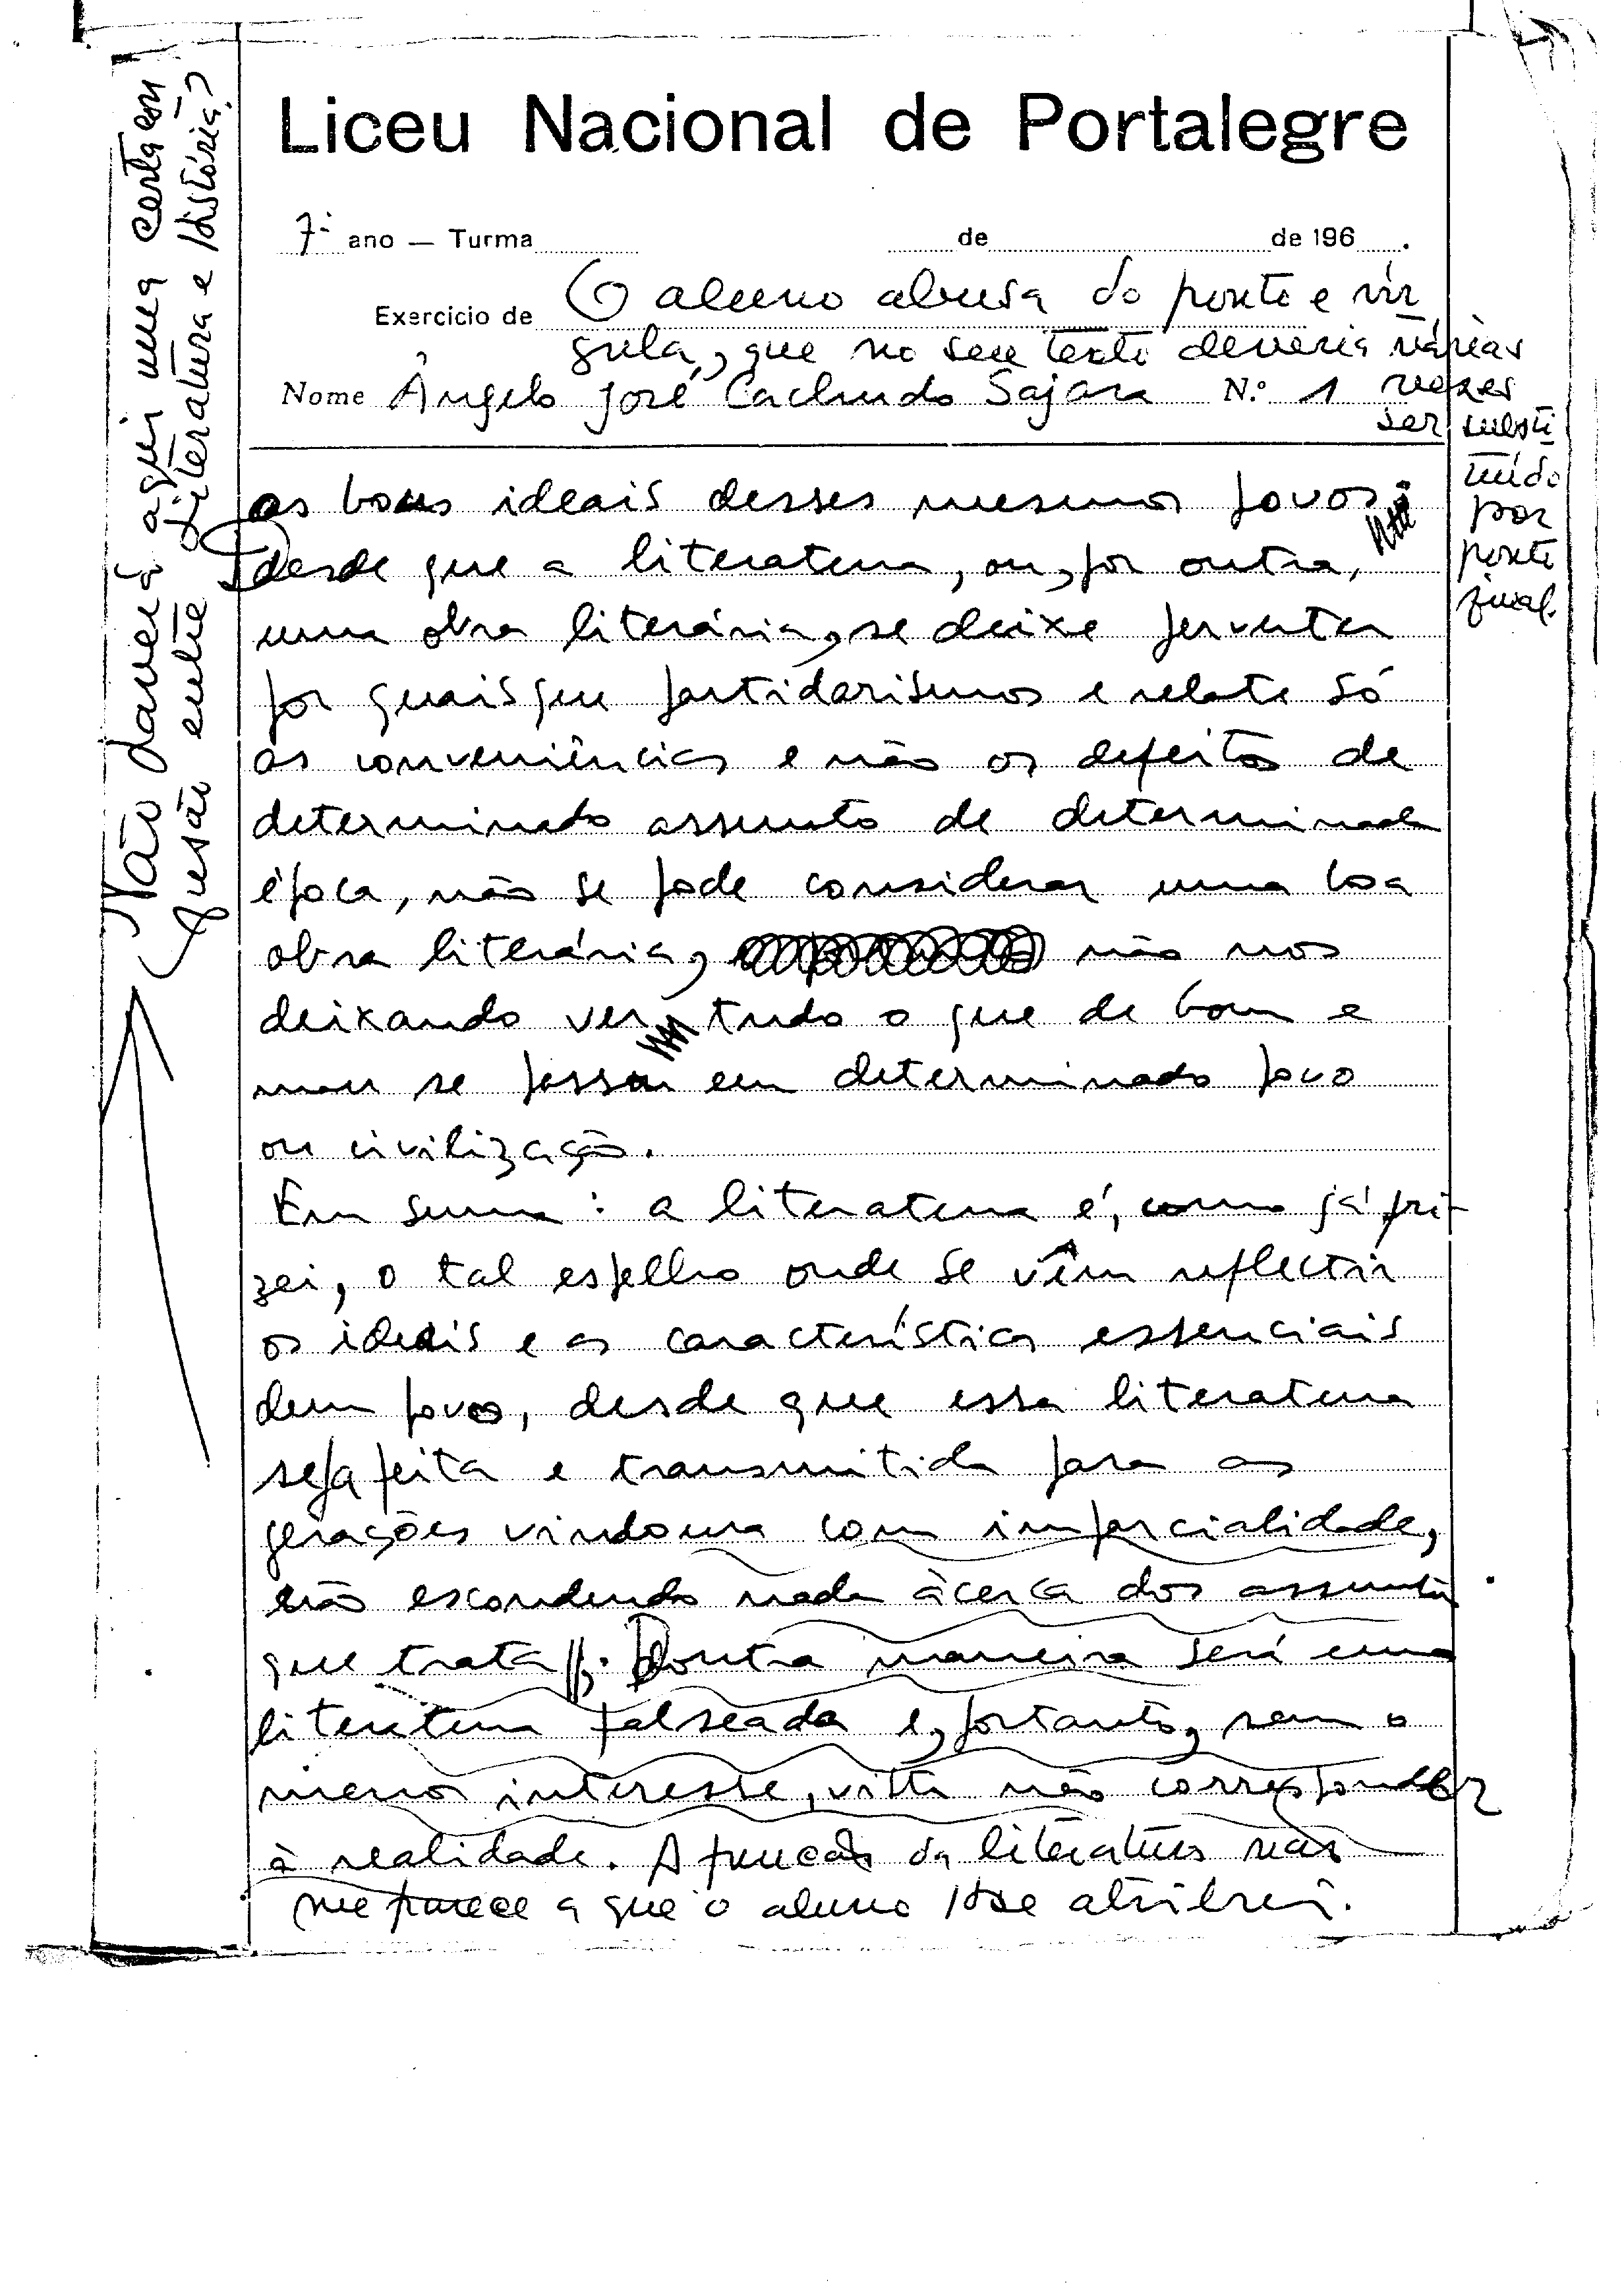 Liceu Nacional de Portalegre
7º ano — Turma de de 196 .
Exercício de O aluno abusa do ponto e vír
gula, que no seu texto deveria várias
Nome Ângelo José Cachudo Sajara N.º 1 vezes
ser substi
tuído
por
ponto
final.
Não haverá aqui uma certa con
fusão entre Literatura e História?
os bons ideais desses mesmos povos.
Desde que a literatura, ou, por outra,
uma obra literária, se deixe perverter
por quaisquer partidarismos e relate só
as conveniências e não os defeitos de
determinado assunto de determinada
época, não se pode considerar uma boa
obra literária, não nos
deixando ver tudo o que de bom e
mau se passou em determinado povo
ou civilização.
Em suma: a literatura é, como já fri-
zei, o tal espelho onde se vêm reflectir
os ideais e as características essenciais
dum povo, desde que essa literatura
seja feita e transmitida para as
gerações vindoura com imparcialidade,
não escondendo nada àcerca dos assuntos
que trata. Doutra maneira será uma
literatura falseada e, portanto, sem o
menor interesse, visto não corresponder
à realidade. A função da literatura não
me parece a que o aluno lhe atribui.